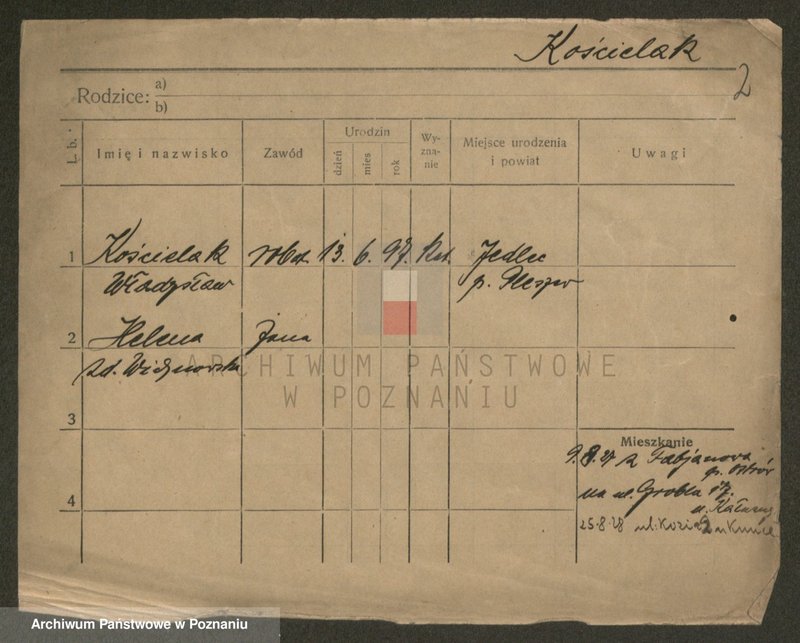 Kościelak
2
Rodzice: a)
b)
L. b. Imię i nazwisko Zawód Urodzin dzień mies rok Wy-zna-nie Miejsce urodzenia i powiat Uwagi
1 Kościelak robot. 13. 6. 97. kat. Jedlec
Władysław p. Pleszew
2 Helena żona
zd.
ARCHIWUM PAŃSTWOWE
W POZNANIU
3
Mieszkanie
9.8.27 z Fabjanowa
p. Ostrów
4
na ul. Grobla 17.
u.
25.8.28 ul. Kozia 2 u
Archiwum Państwowe w Poznaniu